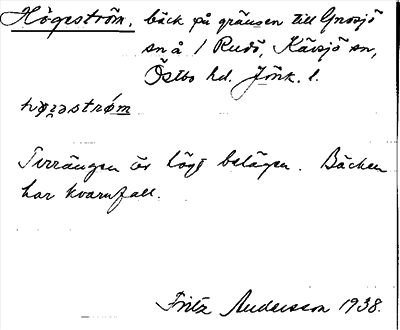 Högeström, bäck på gränsen till Gnosjö
sn å / Rudö, Kävsjö sn,
Östbo hd. Jönk. l.
høgəstrøm
Terrängen är högt belägen. Bäcken
har kvarnfall.
Fritz Andersson 1938.